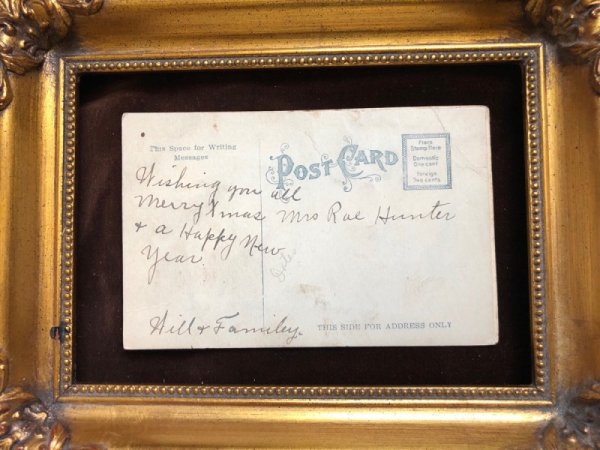 This Space for Writing
Messages
POST CARD
Place
Stamp Here
Domestic
One cent
Foreign
Two cents
Wishing you all
Merry Xmas
& a Happy New
Year
Mrs Rae Hunter
Will & Familey.
THIS SIDE FOR ADDRESS ONLY